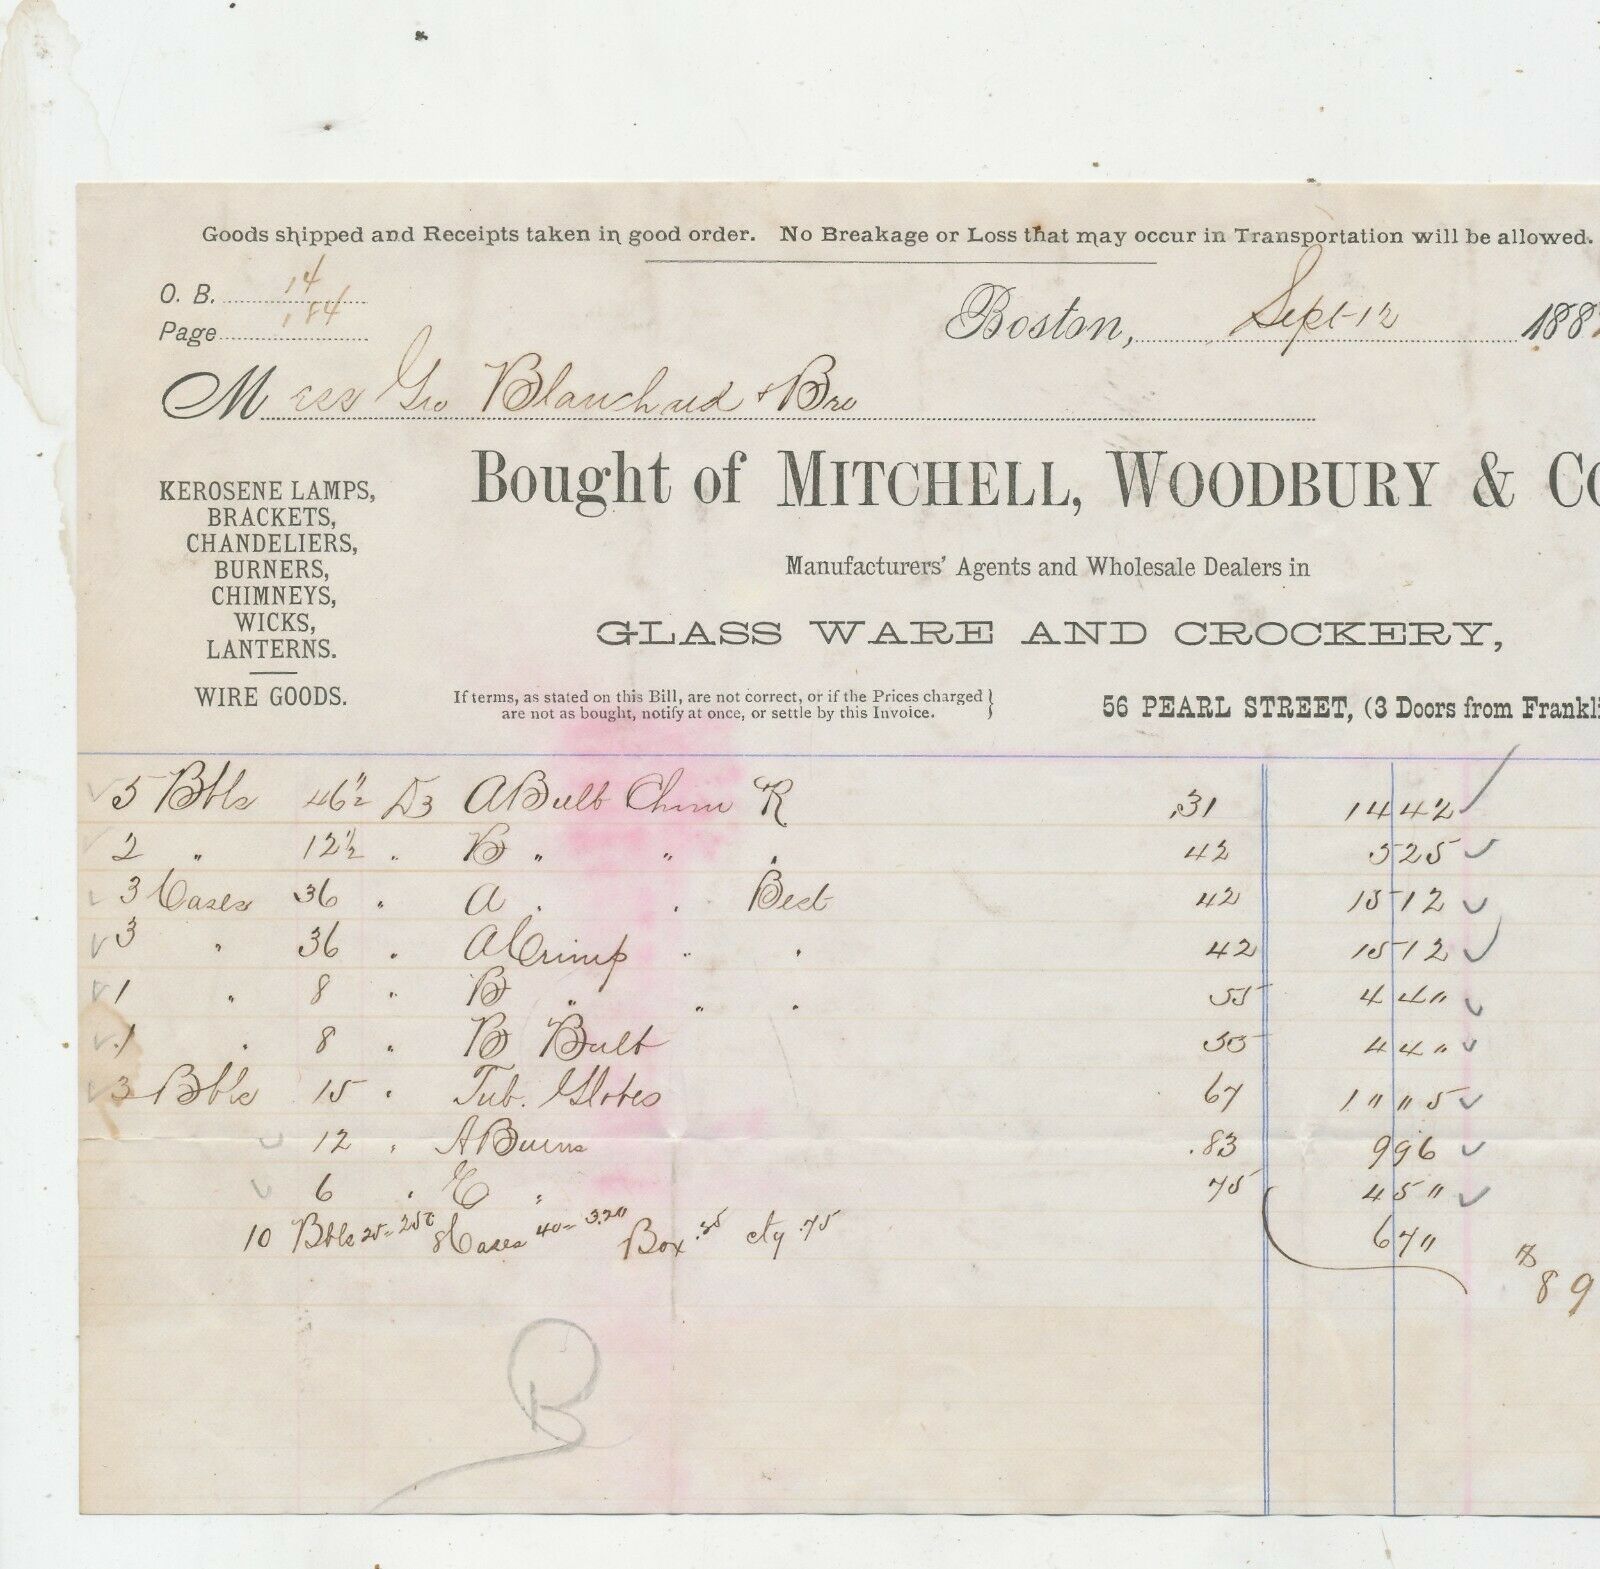 Goods shipped and Receipts taken in good order. No Breakage or Loss that may occur in Transportation will be allowed.
O. B. 14
Page 184
Boston, Sept 12 188
Mess Geo Blanchard & Bro
Bought of MITCHELL, WOODBURY & CO
Manufacturers' Agents and Wholesale Dealers in
GLASS WARE AND CROCKERY,
KEROSENE LAMPS,
BRACKETS,
CHANDELIERS,
BURNERS,
CHIMNEYS,
WICKS,
LANTERNS.
WIRE GOODS.
If terms, as stated on this Bill, are not correct, or if the Prices charged }
are not as bought, notify at once, or settle by this Invoice.
56 PEARL STREET, (3 Doors from Frankli
5 Bbls 46½ Dz A Bulb Chim R .31 14 42
2 " 12½ " B " " " 42 5 25
3 Cases 36 " A " " Best 42 15 12
3 " 36 " A Crimp " " 42 15 12
1 " 8 " B " " " 55 4 4"
1 " 8 " B Bulb 55 4 4"
3 Bbls 15 " Tub. Globes 67 1" "5
12 " A Burns .83 9 96
6 " E " 75 4 5"
10 Bbls 25= 250 8 Cases 40= 3.20 Box .25 cty .75 6 7"
$ 89
B